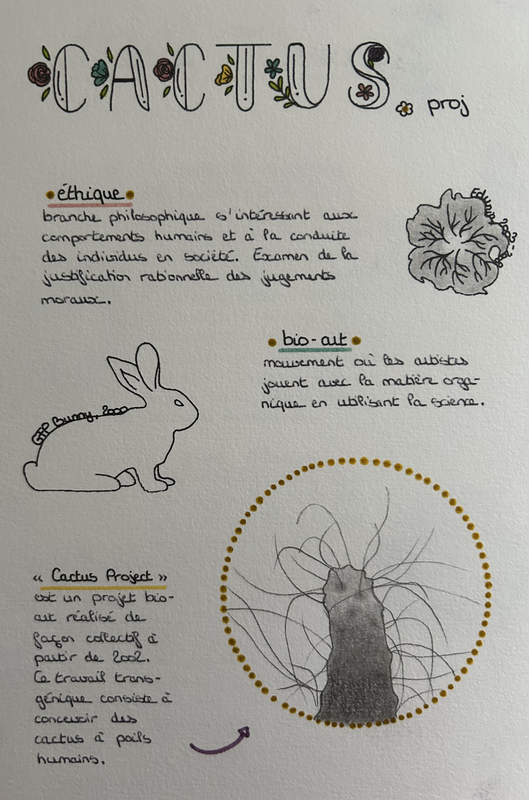 CACTUS proj
éthique
branche philosophique s'intéressant aux
comportements humains et à la conduite
des individus en société. Examen de la
justification rationnelle des jugements
moraux.
bio-art
mouvement où les artistes
jouent avec la matière orga-
nique en utilisant la science.
GFP Bunny, 2000
« Cactus Project »
est un projet bio-
art réalisé de
façon collectif à
partir de 2002.
Ce travail trans-
génique consiste à
concevoir des
cactus à poils
humains.